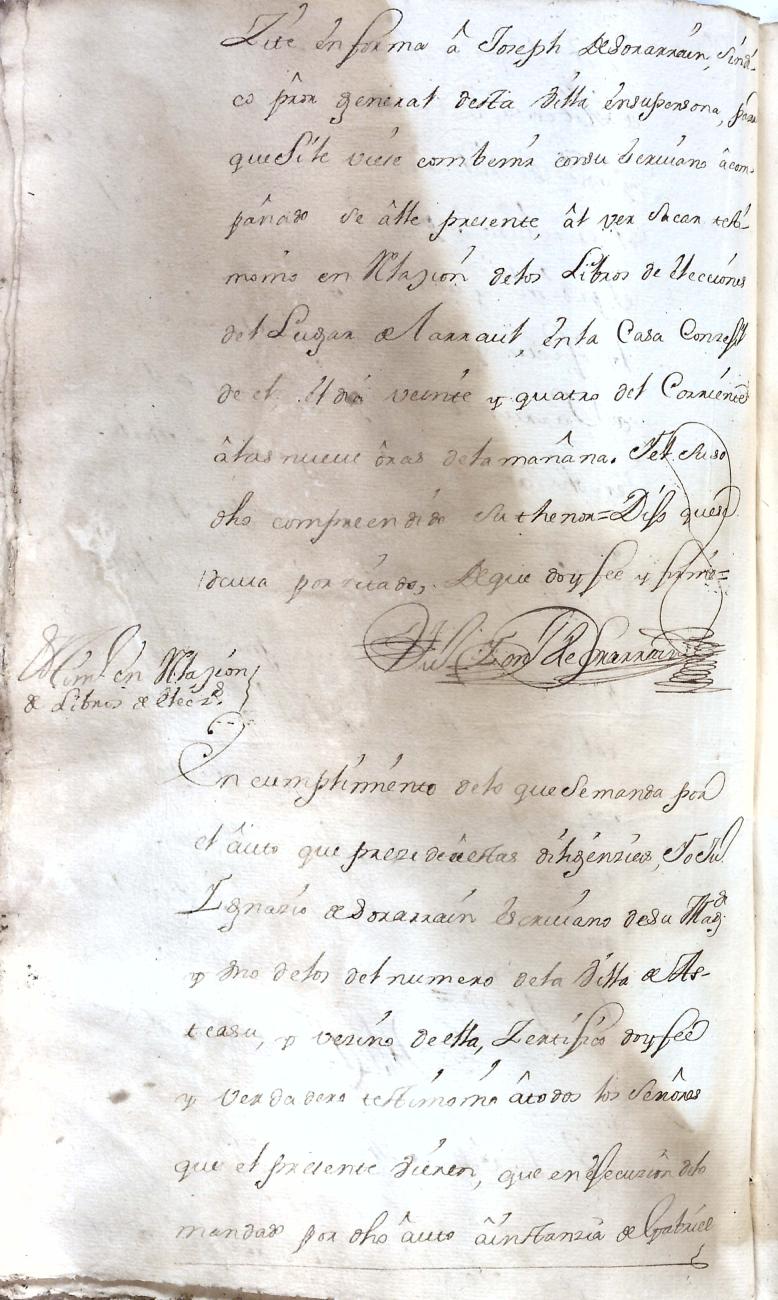 Zité en forma â Joseph de Sorarrain, Sindi-
co pror general desta Villa ensupersona, para
que Si le viere combenir consu escrivano âcom-
pâñado se âlle presente, âl ver sacar testi-
monio en Relazion delos Libros de elecciones
del Lugar de Larraul, enla Casa Conzegil
de el, el dia veinte y quatro del Corriente
âlas nueve ôras dela mañana. Y el suso
dho compreendido su thenor= Dijo que se
dava por zitado, de que doy feé y firmé=
de Sorarrain
Testimo en Relazion
de Libros de elecz.s
En cumplimiento delo que Semanda por
el âuto que prezede âestas dilijenzias, Yo
Ignazio de Sorarrain escrivano desu Magd
y vno delos del numero dela Villa de As-
teasu, y vezino de ella, Zertifico doy feé
y verdadero testimonio âtodos los Señores
que el presente vieren, que en ejecuzion delo
mandado por dho âuto âinstanzia de Gabriel